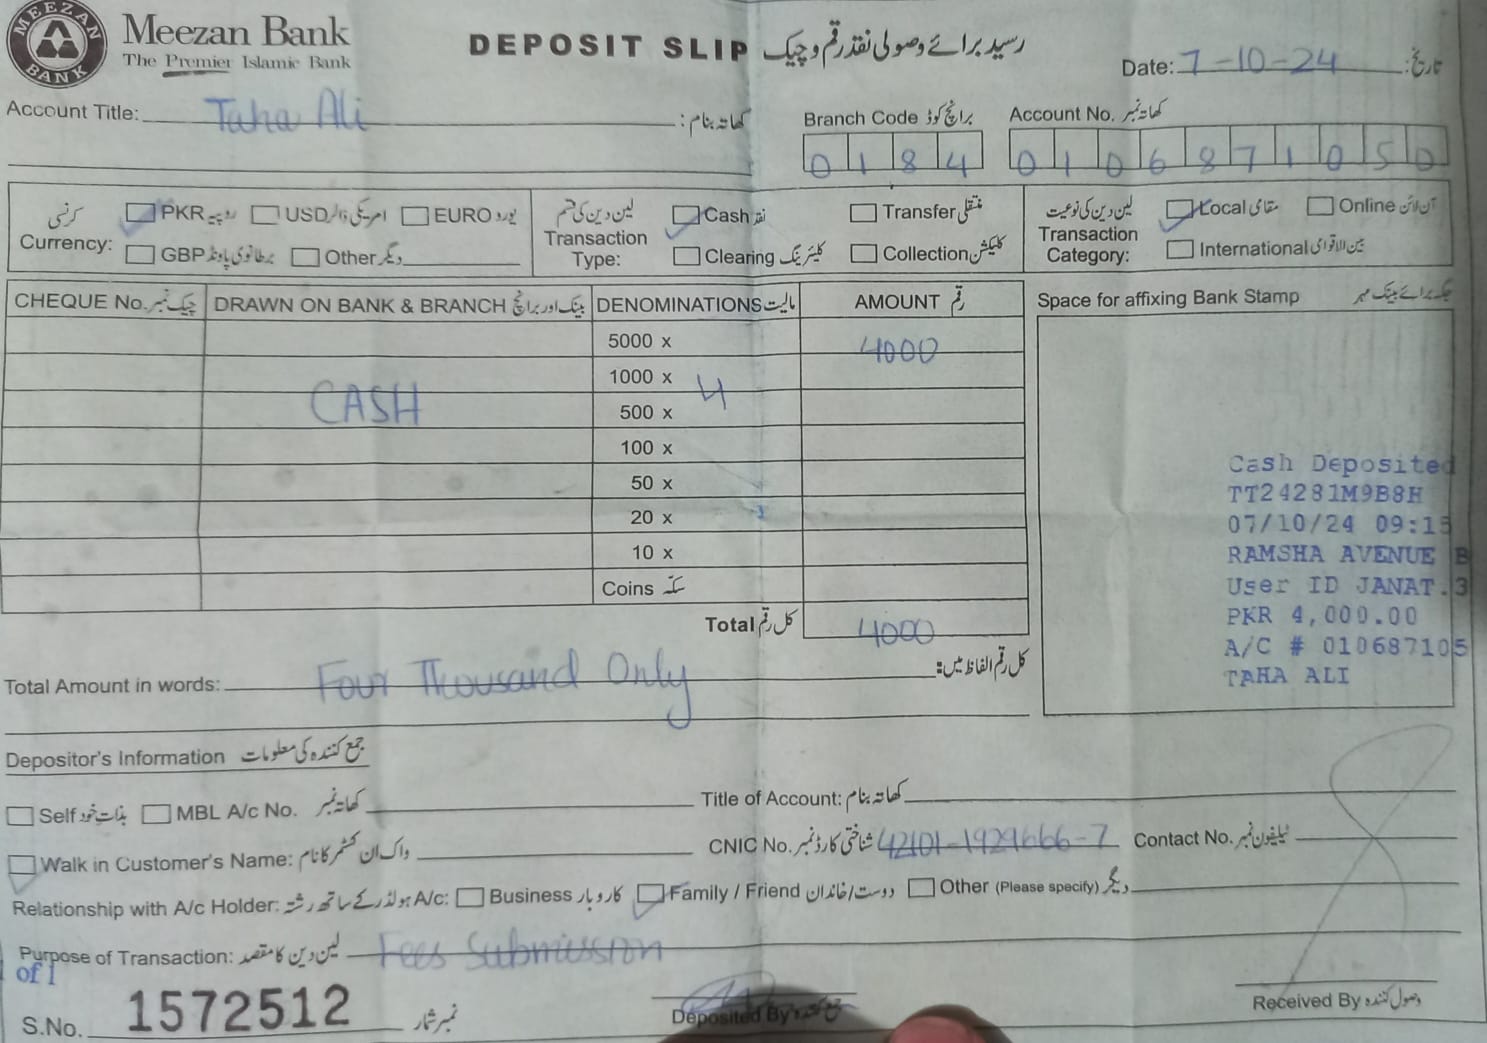 MEEZAN BANK
Meezan Bank
The Premier Islamic Bank
DEPOSIT SLIP رسید برائے وصولی نقد رقم و چیک
Date: 7-10-24 تاریخ:
Account Title: Taha Ali کھاتہ بنام:
Branch Code برانچ کوڈ Account No. کھاتہ نمبر
0184 0106871050
کرنسی PKR روپیہ USD امریکی ڈالر EURO یورو
Currency: GBP برطانوی پاؤنڈ Other دیگر
لین دین کی قسم Cash نقد Transfer منتقلی
Transaction Type: Clearing کلیئرنگ Collection کلیکشن
لین دین کی نوعیت Local مقامی Online آن لائن
Transaction Category: International بین الاقوامی
CHEQUE No. چیک نمبر DRAWN ON BANK & BRANCH بینک اور برانچ DENOMINATIONS مالیت AMOUNT رقم
5000 x 4000
1000 x 4
CASH
500 x
100 x
50 x
20 x
10 x
Coins سکّہ
Total کل رقم 4000
Space for affixing Bank Stamp جگہ برائے بینک مہر
Cash Deposited
TT24281M9B8H
07/10/24 09:15
RAMSHA AVENUE B
User ID JANAT.3
PKR 4,000.00
A/C # 010687105
TAHA ALI
Total Amount in words: Four Thousand Only کل رقم الفاظ میں:
Depositor's Information جمع کنندہ کی معلومات
Self بذات خود MBL A/c No. کھاتہ نمبر Title of Account: کھاتہ بنام
Walk in Customer's Name: واک ان کسٹمر کا نام CNIC No. شناختی کارڈ نمبر 42101-1929666-7 Contact No. ٹیلیفون نمبر
Relationship with A/c Holder: ہولڈر کے ساتھ رشتہ A/c: Business کاروبار Family / Friend دوست/خاندان Other (Please specify) دیگر
Purpose of Transaction: لین دین کا مقصد Fees Submission
of 1
S.No. 1572512 نمبر شمار
Deposited By جمع کنندہ
Received By وصول کنندہ